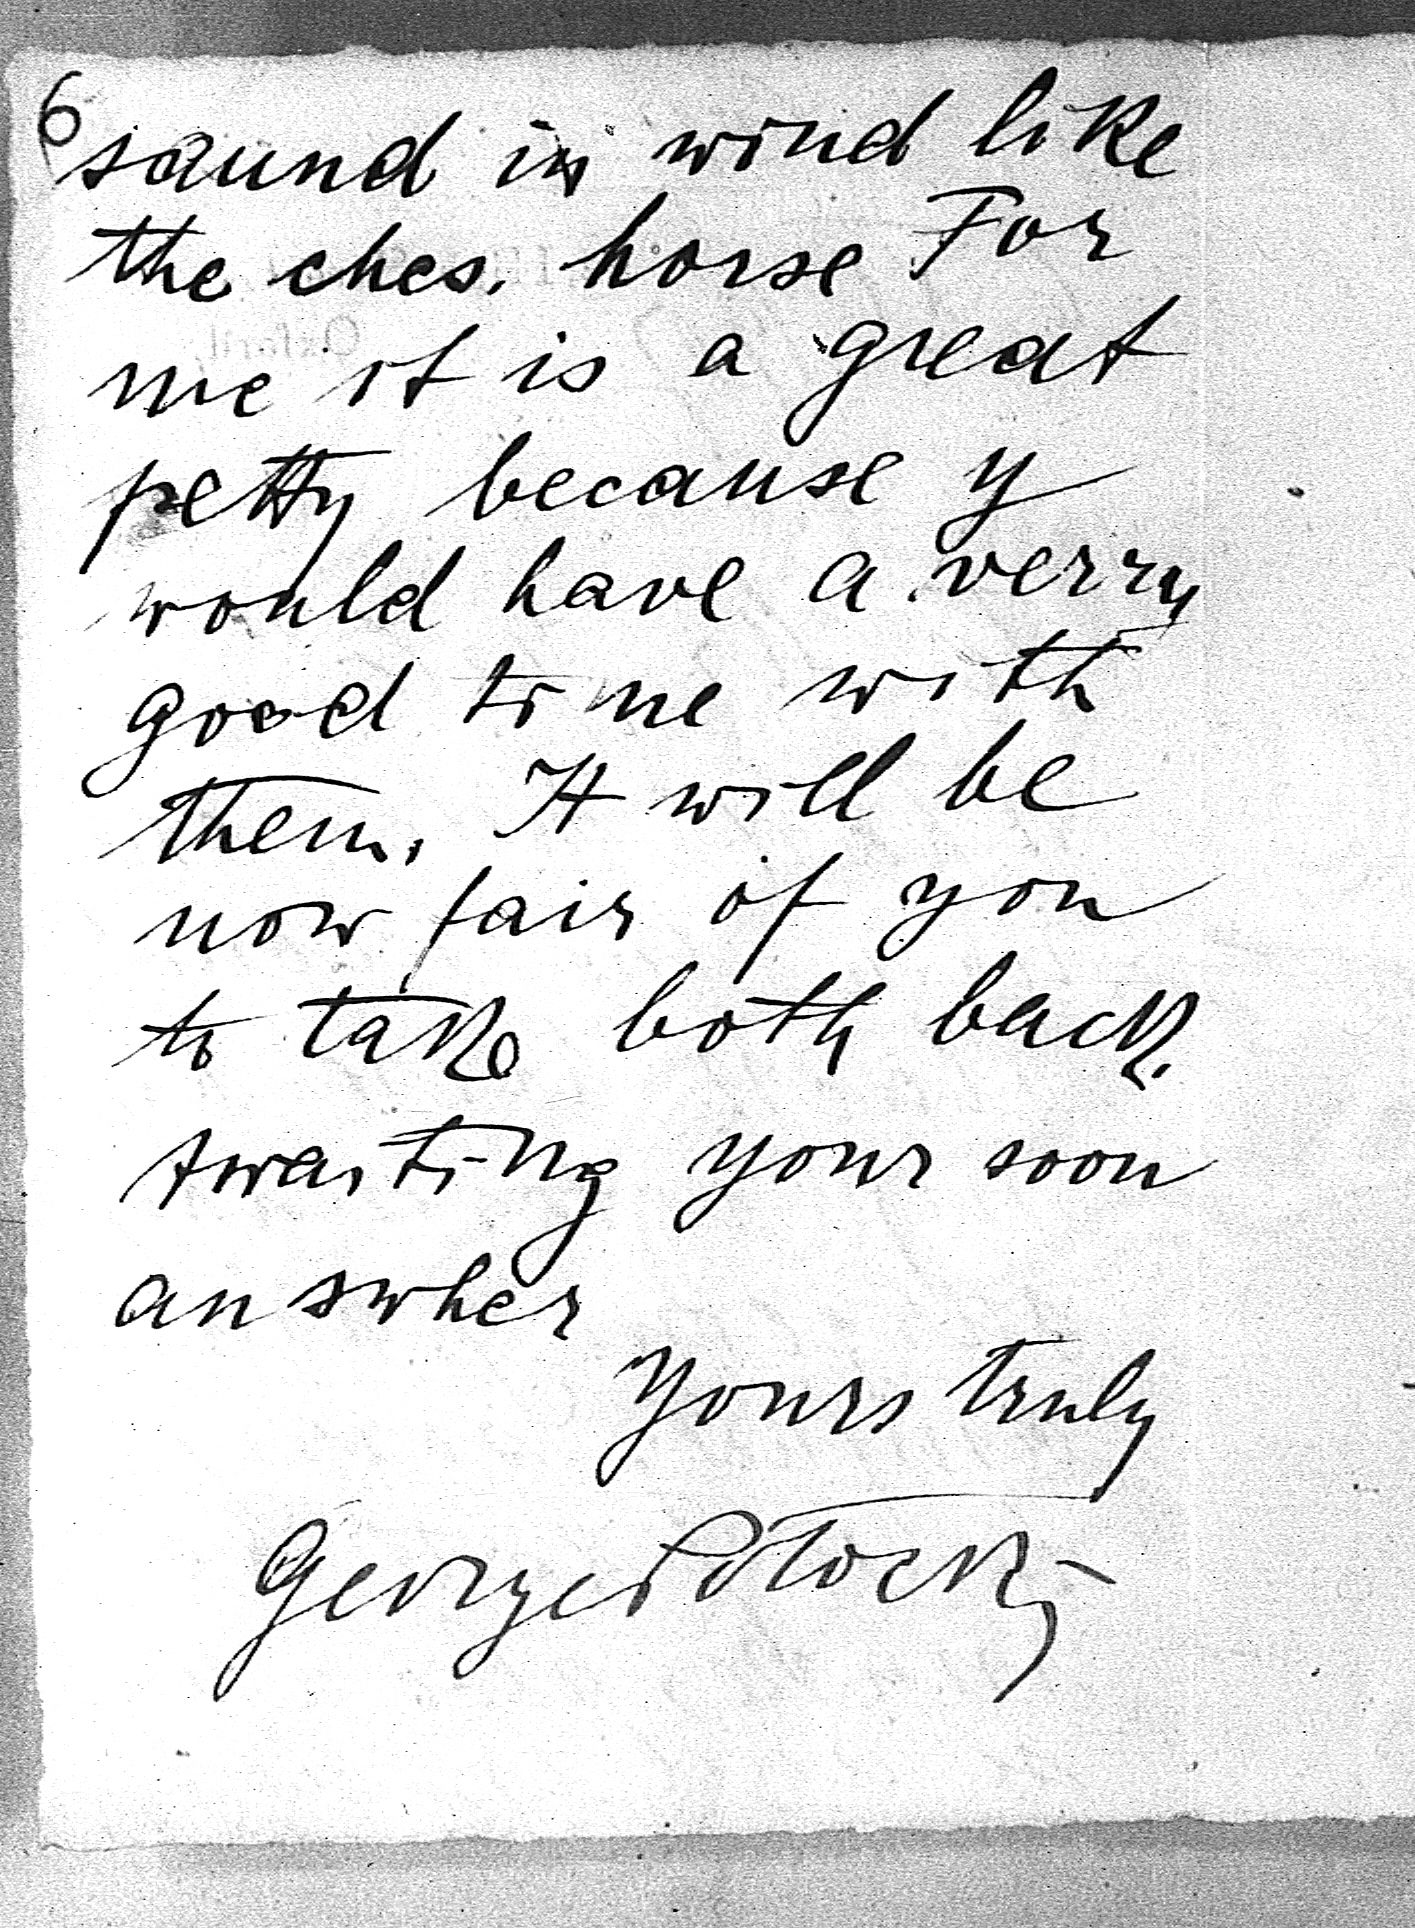 6
saund in wind like
the ches. horse For
me it is a great
petty because y
would have a verry
good time with
them. It will be
now fair of you
to take both back.
Awaiting your soon
answher
Yours truly
George Stock